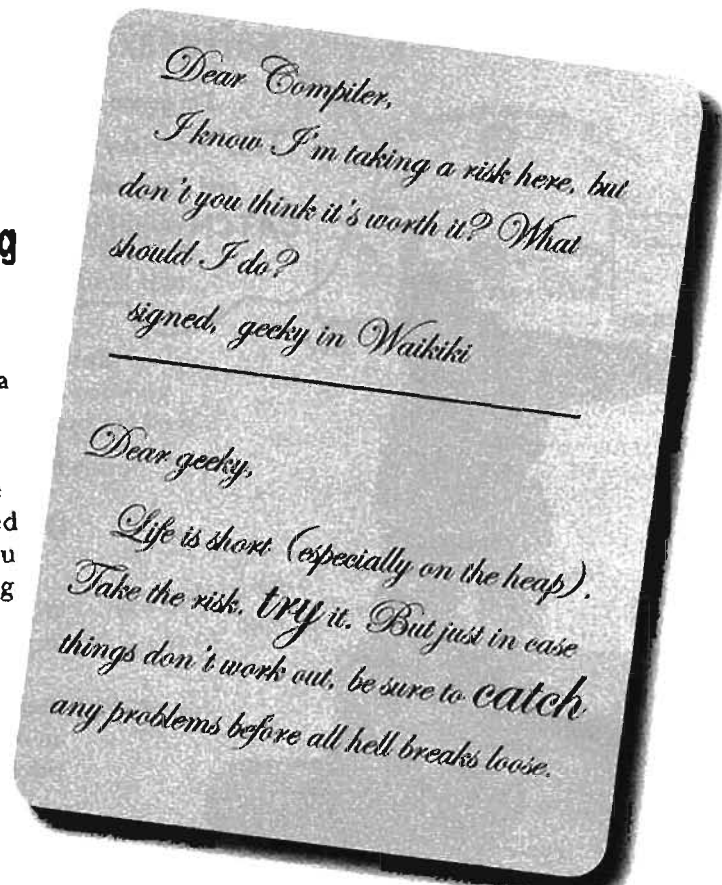 g
a
ed
u
g
Dear Compiler,
I know I'm taking a risk here, but
don't you think it's worth it? What
should I do?
signed, geeky in Waikiki
Dear geeky,
Life is short (especially on the heap).
Take the risk. try it. But just in case
things don't work out, be sure to catch
any problems before all hell breaks loose.